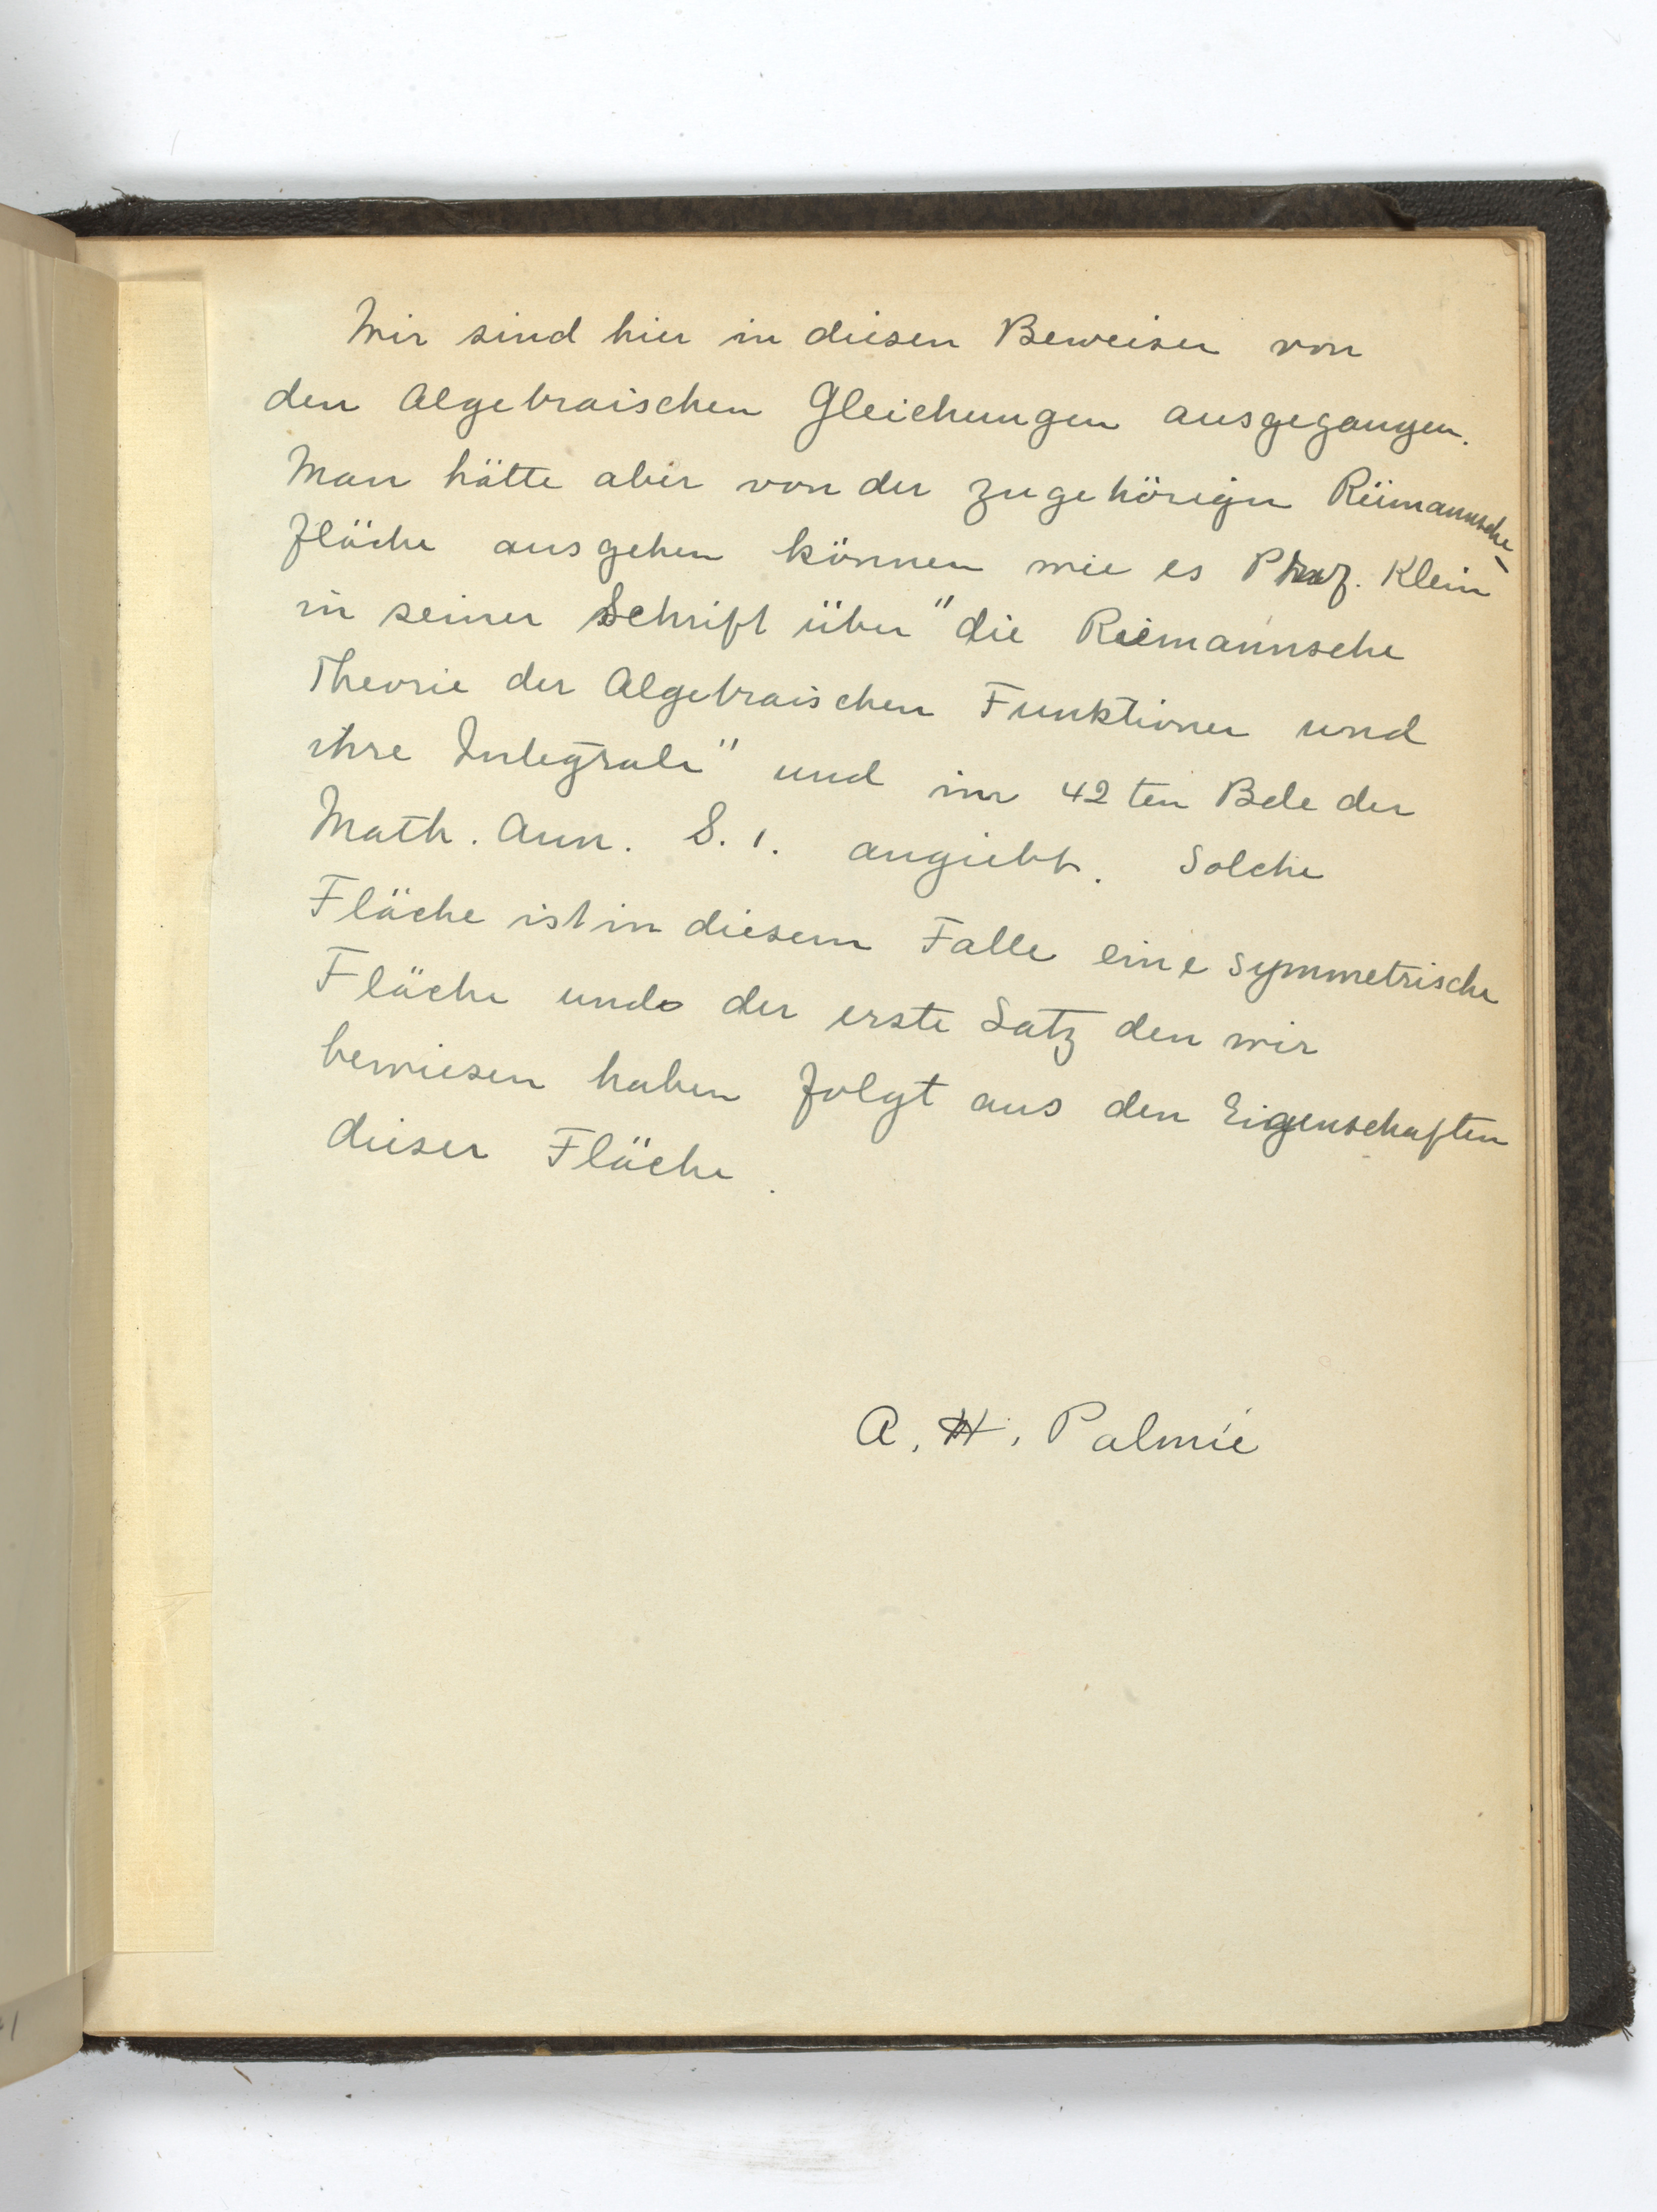 Wir sind hier in diesen Beweisen von
den Algebraischen Gleichungen ausgegangen.
Man hätte aber von der zugehörigen Riemannsche-
fläche ausgehen können wie es Prof. Klein
in seiner Schrift über "die Riemannsche
Theorie der Algebraischen Funktionen und
ihre Integrale" und im 42ten Bde der
Math. Ann. S. 1. angiebt. Solche
Fläche ist in diesem Falle eine symmetrische
Fläche und der erste Satz den wir
bewiesen haben folgt aus den Eigenschaften
dieser Fläche.
A. H. Palmié